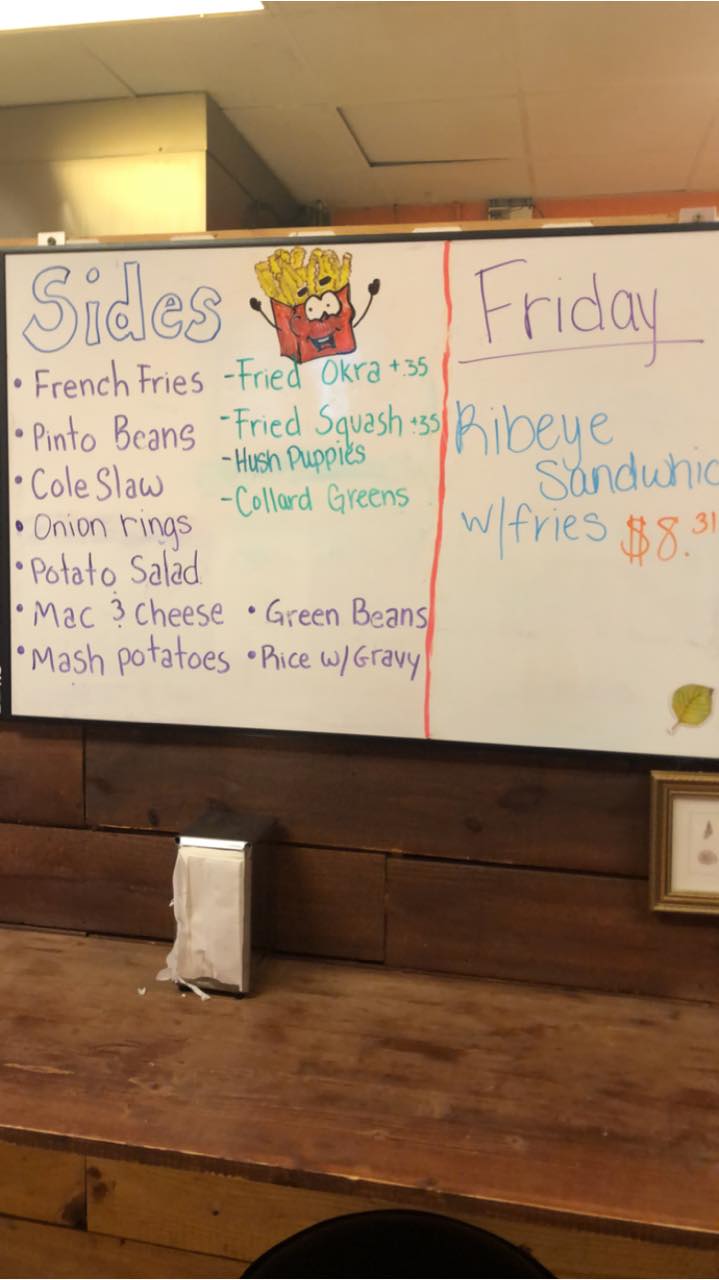 Sides
• French Fries
• Pinto Beans
• Cole Slaw
• Onion rings
• Potato Salad
• Mac & cheese
• Mash potatoes
- Fried Okra +.35
- Fried Squash +.35
- Hush Puppies
- Collard Greens
• Green Beans
• Rice w/Gravy
Friday
Ribeye
Sandwhic
w/fries $8.31